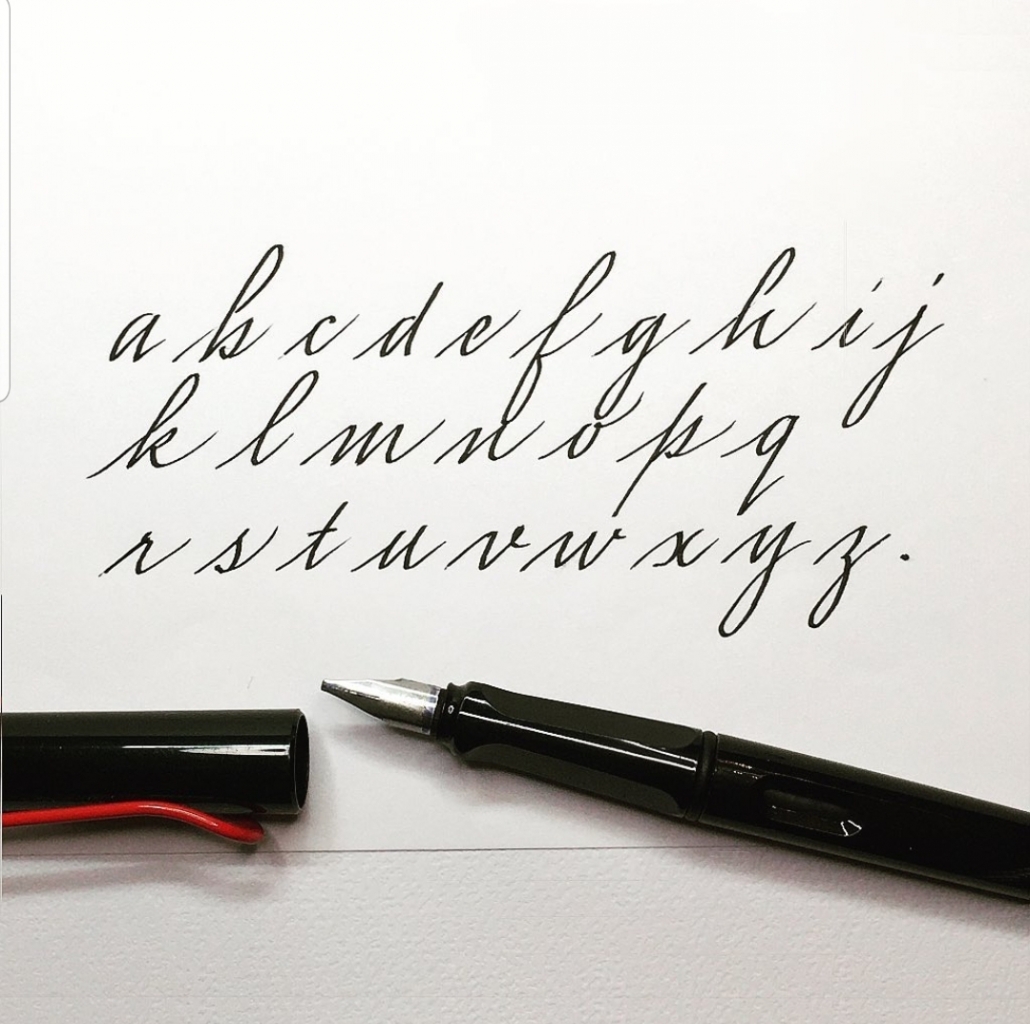 a b c d e f g h i j
k l m n o p q
r s t u v w x y z.